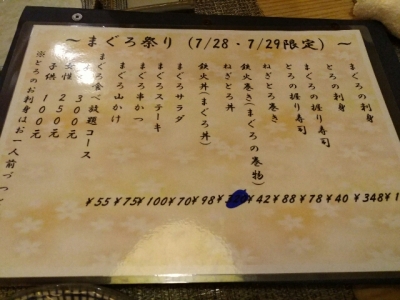 ～まぐろ祭り (7/28・7/29限定) ～
まぐろの刺身
とろの刺身
まぐろの握り寿司
とろの握り寿司
ねぎとろ巻き
鉄火巻き(まぐろの巻物)
ねぎとろ丼
鉄火丼(まぐろ丼)
まぐろサラダ
まぐろステーキ
まぐろ串かつ
まぐろ山かけ
まぐろ食べ放題コース
３００元
女性 ２５０元
子供 １００元
※とろのお刺身はお一人前づつ
¥55 ¥75 ¥100 ¥70 ¥98 ¥42 ¥88 ¥78 ¥40 ¥348